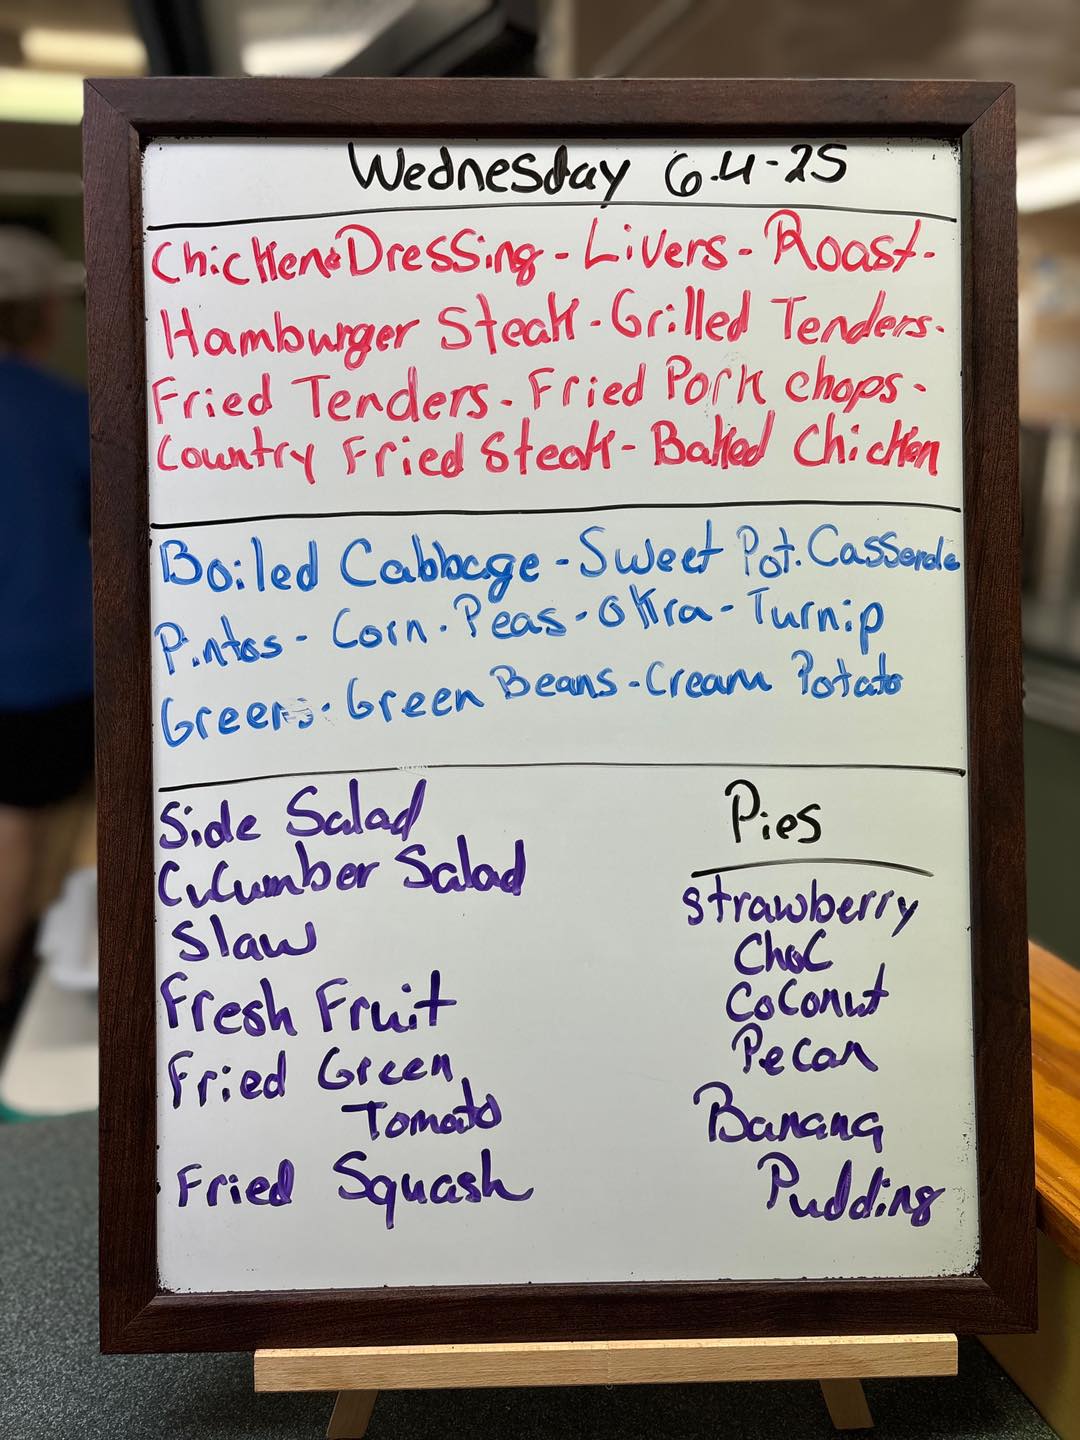 Wednesday 6-4-25
Chicken & Dressing - Livers - Roast -
Hamburger Steak - Grilled Tenders -
Fried Tenders - Fried Pork Chops -
Country Fried Steak - Baked Chicken
Boiled Cabbage - Sweet Pot. Casserole
Pintos - Corn - Peas - Okra - Turnip
Greens - Green Beans - Cream Potato
Side Salad
Cucumber Salad
Slaw
Fresh Fruit
Fried Green
Tomato
Fried Squash
Pies
Strawberry
Choc
Coconut
Pecan
Banana
Pudding